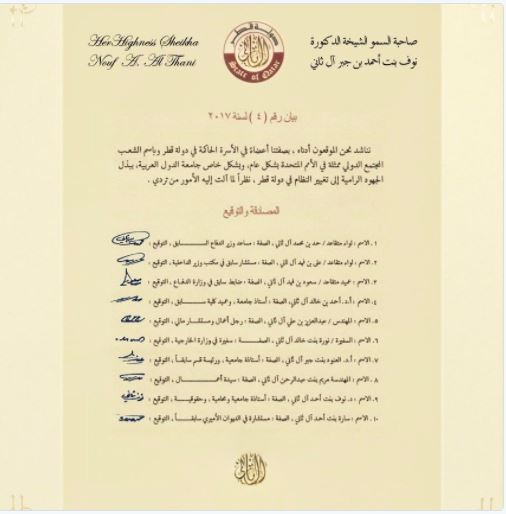 Her Highness Sheikha
Nouf A. Al Thani
دولة قطر
State of Qatar
صاحبة السمو الشيخة الدكتورة
نوف بنت أحمد بن جبر آل ثاني
بيان رقم ( ٤ ) لسنة ٢٠١٧
نناشد نحن الموقعون أدناه ، بصفتنا أعضاءً في الأسرة الحاكمة في دولة قطر وباسم الشعب
المجتمع الدولي ممثلة في الأمم المتحدة بشكل عام، وبشكل خاص جامعة الدول العربية، ببذل
الجهود الرامية إلى تغيير النظام في دولة قطر ، نظراً لما آلت إليه الأمور من تردي .
المصادقة والتوقيع
١ . الاسم : لواء متقاعد / حمد بن محمد آل ثاني ، الصفة : مساعد وزير الدفاع الســـابق ، التوقيع :
٢ . الاسم : لواء متقاعد / علي بن فهد آل ثاني ، الصفة : مستشار سابق في مكتب وزير الداخلية ، التوقيع :
٣ . الاسم : عميد متقاعد / سعود بن فهد آل ثاني ، الصفة : ضابط سابق في وزارة الدفـاع ، التوقيع :
٤ . الاسم : أ.د. أحمد بن خالد آل ثاني ، الصفة : أستاذ جامعة ، وعميد كلية ســـابق ، التوقيع :
٥ . الاسم : المهندس / عبدالعزيز بن علي آل ثاني ، الصفة : رجل أعمال ومستشـار مالي ، التوقيع :
٦ . الاسم : السفيرة / نورة بنت خالد آل ثاني ، الصفـــة : سفيرة في وزارة الخارجية ، التوقيع :
٧ . الاسم : أ.د. العنود بنت جبر آل ثاني ، الصفة : أستاذة جامعية ، ورئيسة قسم سابقـاً ، التوقيع :
٨ . الاسم : المهندسة مريم بنت عبدالرحمن آل ثاني ، الصفة : سيدة أعمـــال ، التوقيع :
٩ . الاسم : د. نوف بنت أحمد آل ثاني ، الصفة : أستاذة جامعية ومحامية ، وحقوقيـــة ، التوقيع :
١٠ . الاسم : سارة بنت أحمد آل ثاني ، الصفة : مستشارة في الديوان الأميري سابقـــاً ، التوقيع :